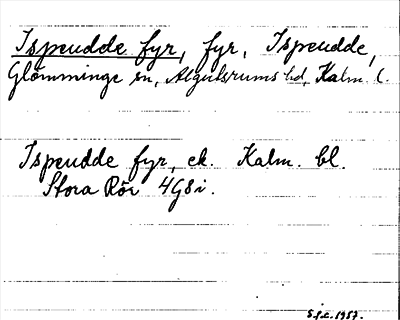 Ispeudde fyr, fyr, Ispeudde,
Glömminge sn, Algutsrums hd, Kalm. l.
Ispeudde fyr, ek. Kalm. bl.
Stora Rör 4G8i.
1957.